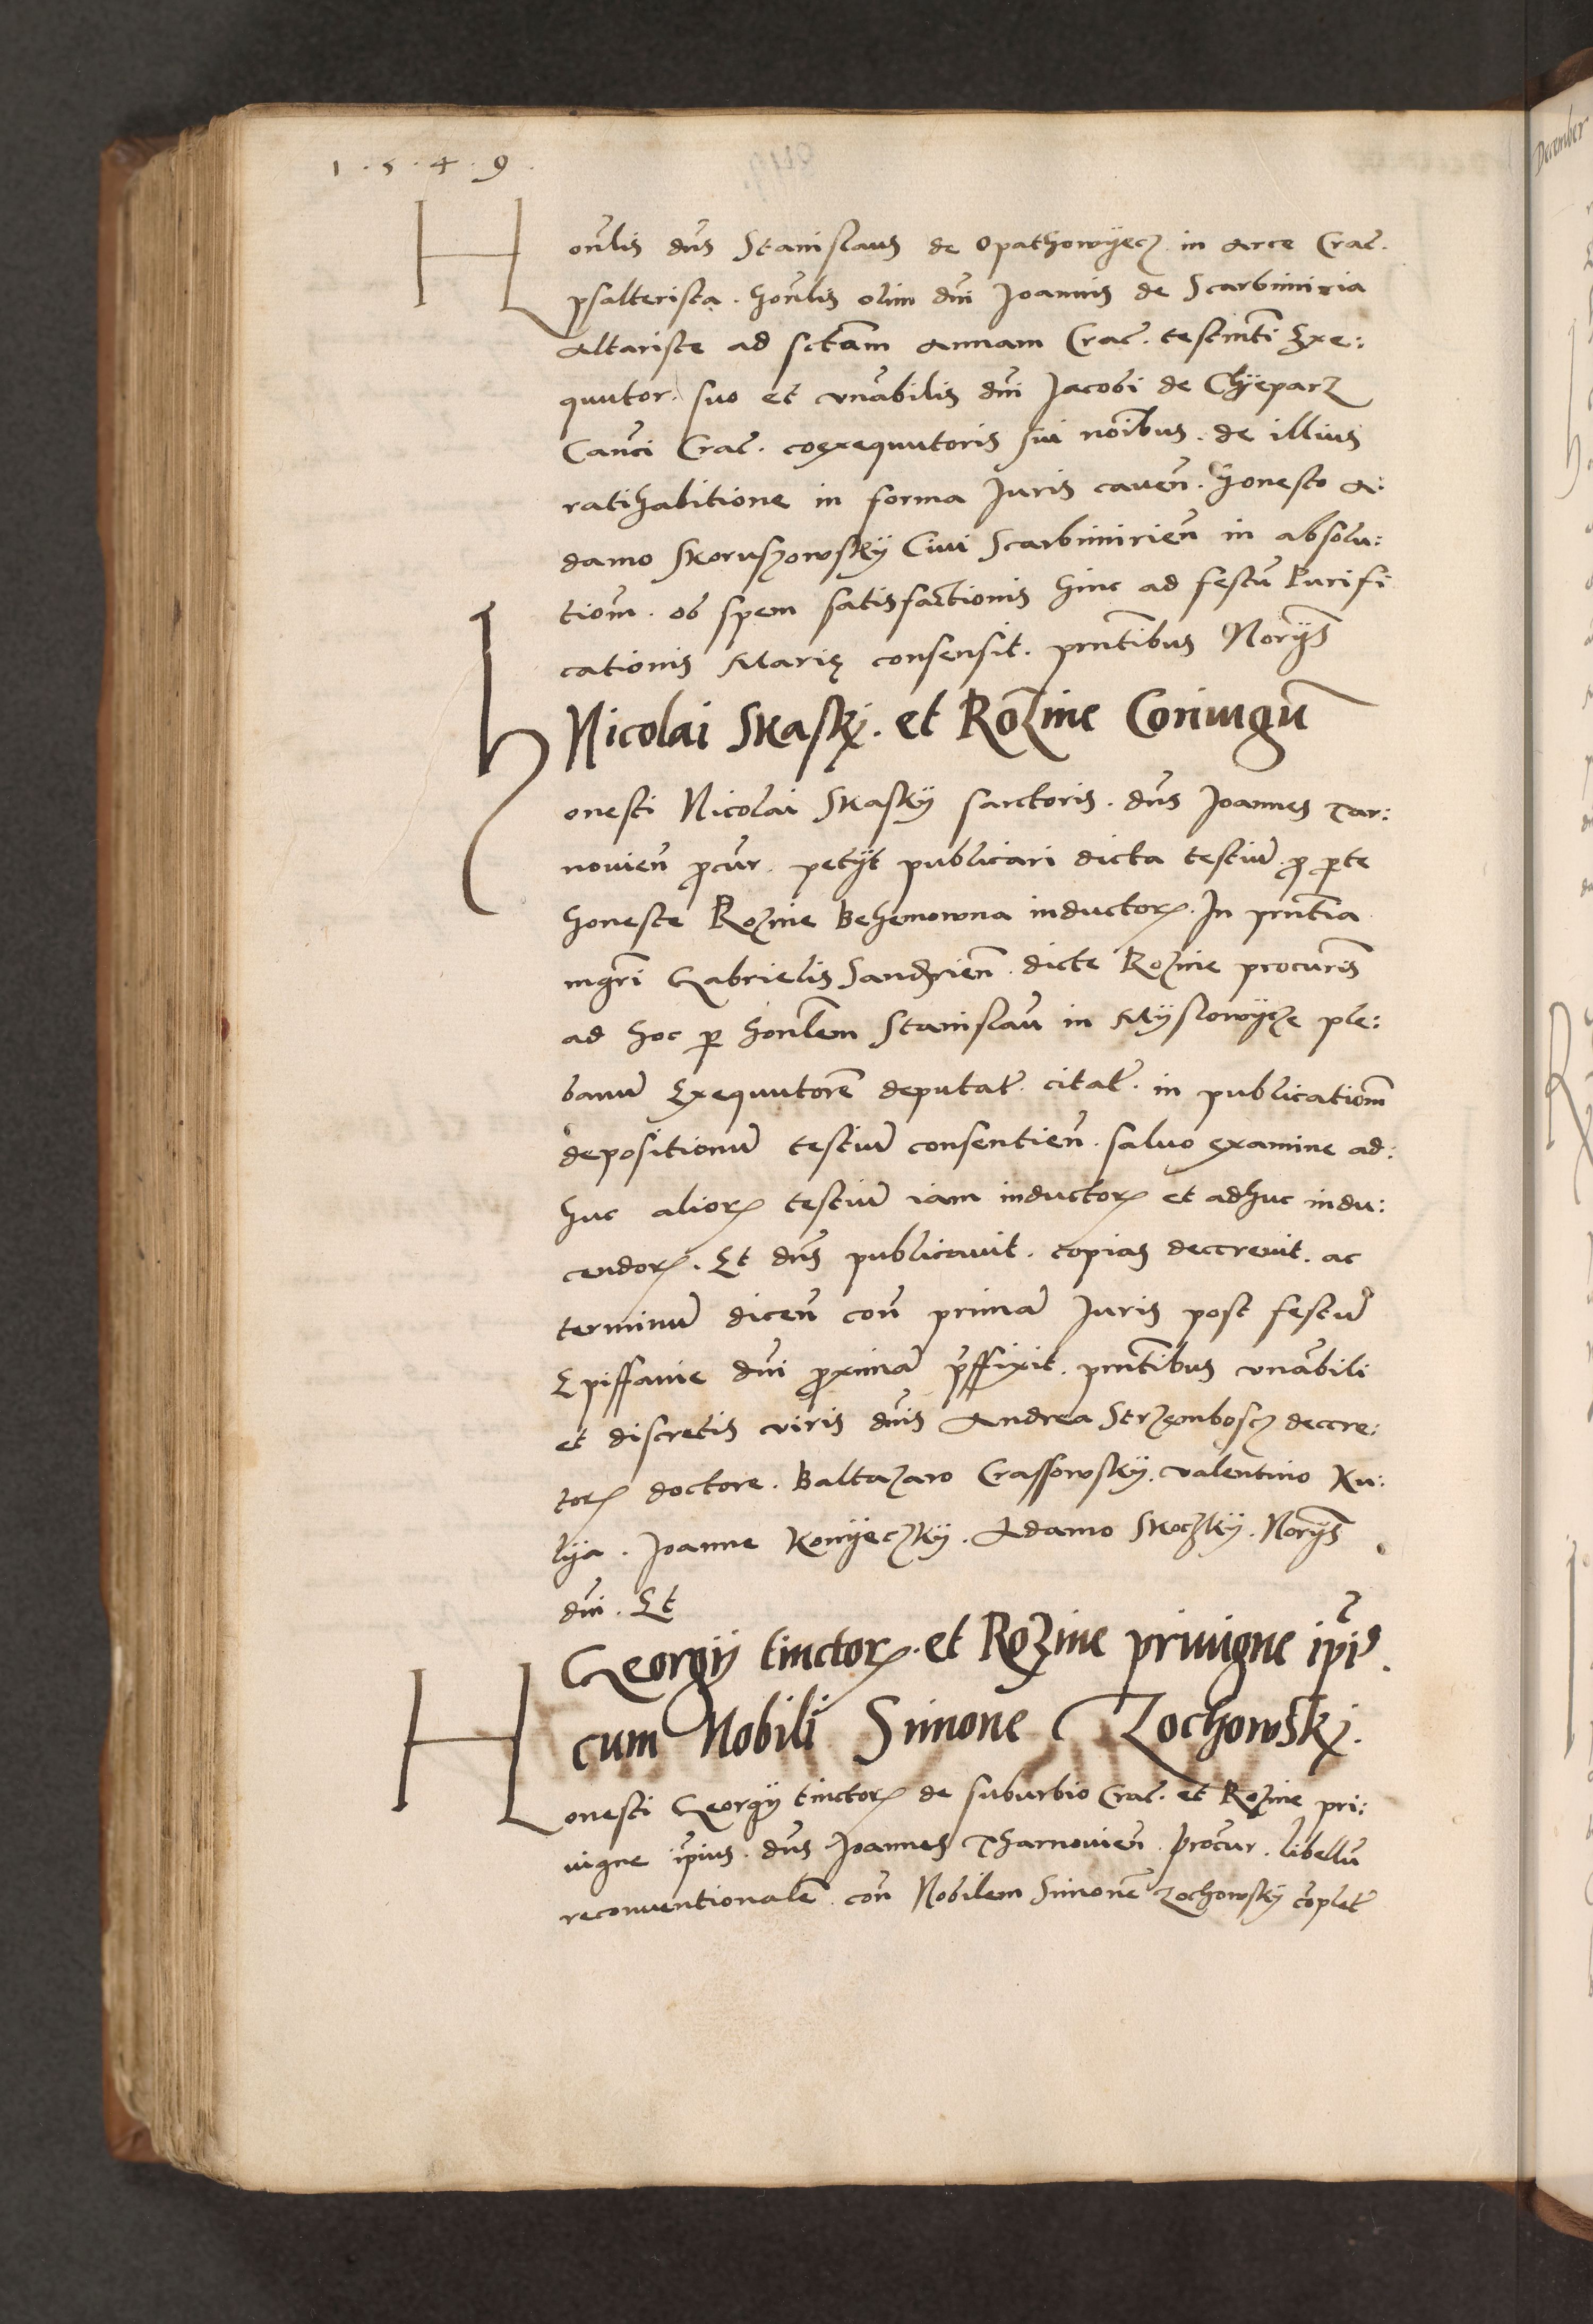 1.5.4.9.
Honlis dns Stanislaus de Opathowyecz in Arce Crac.
psalterista. honlis olim dni Joannis de Scarbimiria
Altariste ad sctam Annam Crac. testmti Exe:
quutor. suo et vnabilis dni Jacobi de Chyeparz
Canci Crac. coexequutoris sui noibus. de illius
ratihabitione in forma Juris caven. Honesto A:
damo Skoruszowsky Civi Scarbimirien in absolu:
tiom. ob spem satisfactionis hinc ad festu Purifi
cationis Marię consensit. pntibus Norijs
Nicolai Skasky. et Rozine Coniugu
Honesti Nicolai Skasky sartoris. dns Joannes Tar:
novien pcur. petijt publicari dicta testiu. p pte
honeste Rozine Behemowna inductor. In pntia
mgri Gabrielis Sandrien. dicte Rozine procuris
ad hoc p honlem Stanislau in Myslowycze ple:
banu Exequutore deputat. citat. in publicatiom
depositionu testiu consentien. salvo examine ad:
huc alior testiu iam inductor et adhuc indu:
cendor. Et dns publicavit. copias decrevit. ac
terminu dicen con prima Juris post festu
Epiffanie dni pxima pffixit. pntibus vnabili
et discretis viris dnis Andrea Strzembosz decre:
tor doctore. Baltazaro Crassowsky. Valentino Ku:
lya. Joanne Konyeczky. Adamo Skoczky. Norijs
dni. Et
Georgij tinctor. et Rozine privigne ipi9.
cum Nobili Simone Zochowsky.
Honesti Georgij tinctor de suburbio Crac. et Rozine pri:
vigne ipius. dns Joannes Tharnovien. Procur. libellu
reconventionale. con Nobilem Simone Zochowsky coplet
December